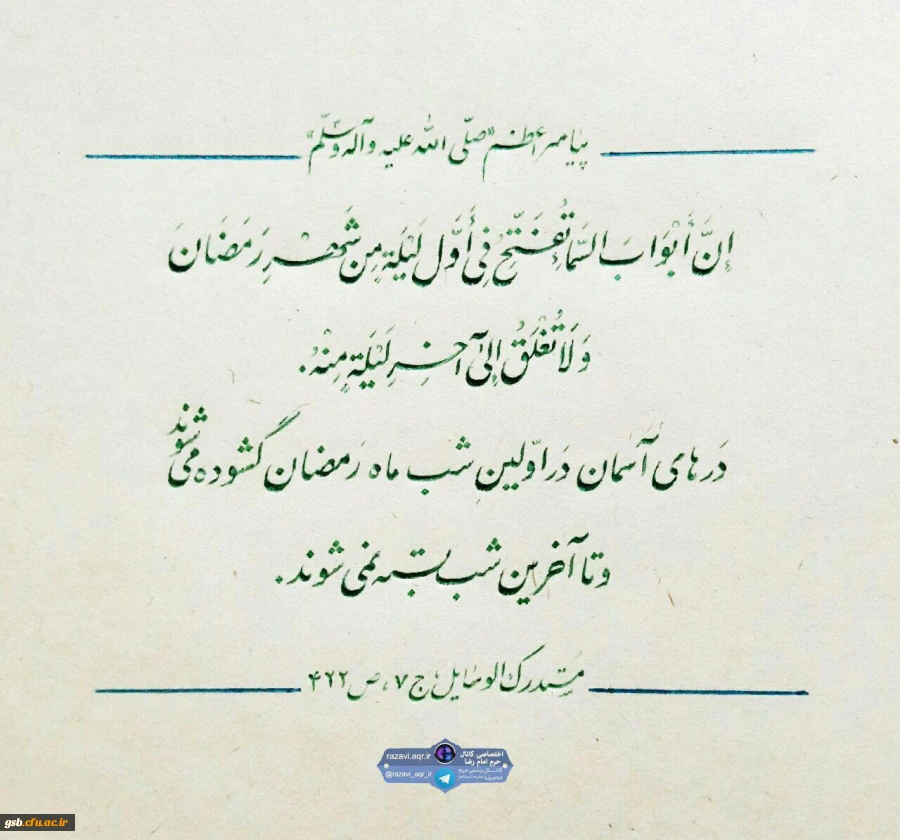 پیامبر اعظم «صلّی الله علیه و آله و سلّم»
إِنَّ أَبْوَابَ السَّمَاءِ تُفَتَّحُ فِي أَوَّلِ لَيْلَةٍ مِنْ شَهْرِ رَمَضَانَ
وَ لَا تُغْلَقُ إِلَى آخِرِ لَيْلَةٍ مِنْهُ.
دَرهای آسمان دَر اوّلین شب ماه رَمضان گشوده می‌شوند
و تا آخرین شب بسته نمی شوند.
مستدرک الوسایل، ج ۷، ص ۴۲۲
razavi.aqr.ir
اختصاصی کانال
حرم امام رضا
@razavi_aqr_ir
کانال رسمی حرم
gsb.cfu.ac.ir